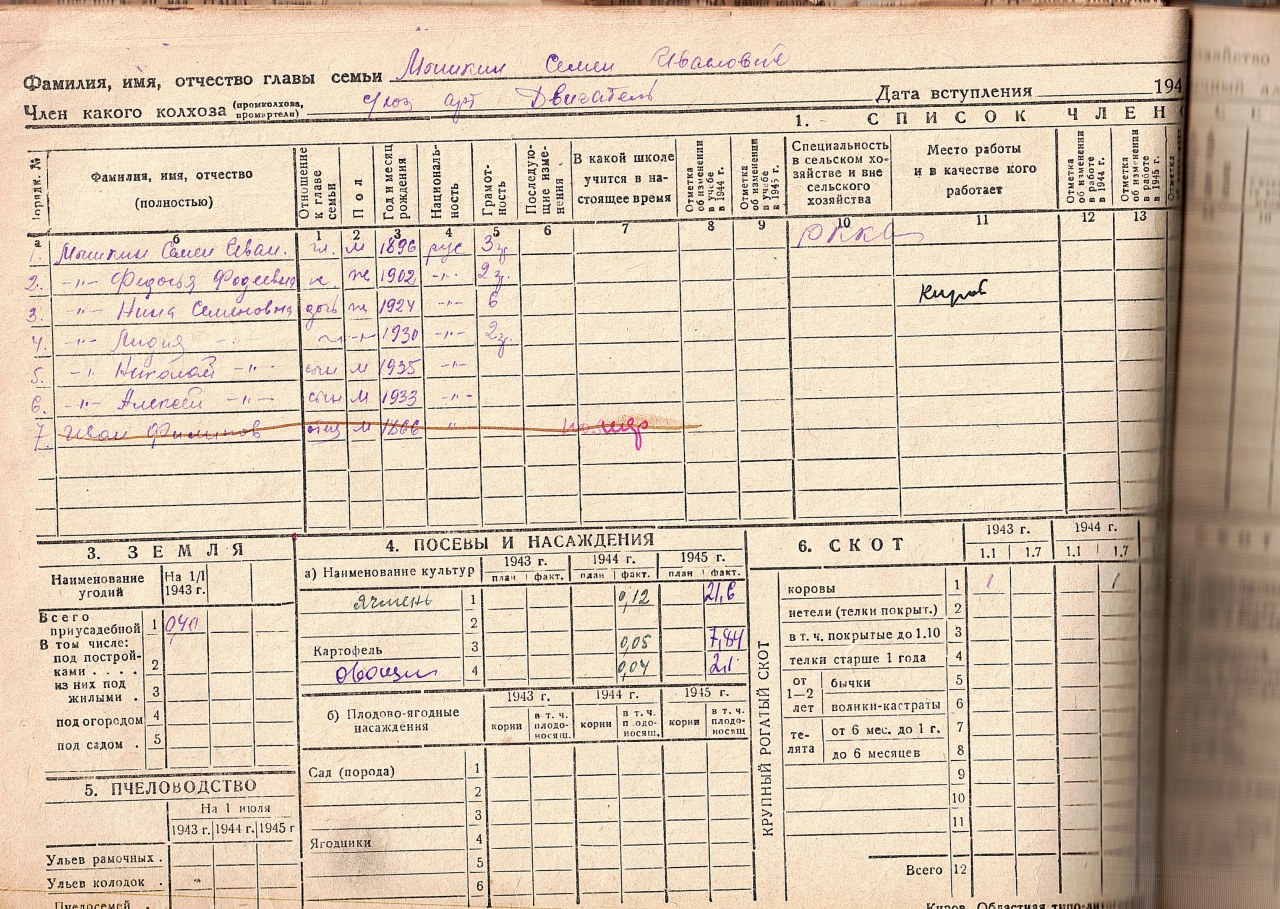 Фамилия, имя, отчество главы семьи Мышкин Семен Иванович
Член какого колхоза (промколхоза, промартели) с/хоз арт Двигатель Дата вступления 194
1. СПИСОК ЧЛЕНО
Порядк. № Фамилия, имя, отчество (полностью) Отношение к главе семьи Пол Год и месяц рождения Националь-ность Грамот-ность Последую-щие изме-нения В какой школе учится в на-стоящее время Отметка об изменении в учебе в 1944 г. Отметка об изменении в учебе в 1945 г. Специальность в сельском хо-зяйстве и вне сельского хозяйства Место работы и в качестве кого работает Отметка об изменении в работе в 1944 г. Отметка об изменении в работе в 1945 г.
б 1 2 3 4 5 6 7 8 9 10 11 12 13
1. Мышкин Семен Иван. гл. м 1896 рус 3 г. РККА
2. -"- Федосья Фадеевна ж 1902 -"- 2 г.
3. -"- Нина Семеновна дочь ж 1924 -"- 6 Киров
4. -"- Лидия -"- -"- 1930 -"- 2 г.
5. -"- Николай -"- сын м 1935 -"-
6. -"- Алексей -"- сын м 1933 -"-
7. Иван отец м 1866 "
3. ЗЕМЛЯ
Наименование угодий На 1/I 1943 г.
Всего приусадебной 1 0,40
В том числе:
под построй-ками . . . . 2
из них под жилыми . 3
под огородом 4
под садом . 5
5. ПЧЕЛОВОДСТВО
На 1 июля
1943 г. 1944 г. 1945 г
Ульев рамочных .
Ульев колодок .
Пчелосемей .
4. ПОСЕВЫ И НАСАЖДЕНИЯ
а) Наименование культур 1943 г. 1944 г. 1945 г.
план факт. план факт. план факт.
Ячмень 1 0,12 21,6
2
Картофель 3 0,05 7,44
Овощи 4 0,04 2,1
б) Плодово-ягодные насаждения 1943 г. 1944 г. 1945 г.
корни в т. ч. плодо-носящ. корни в т. ч. плодо-носящ. корни в т. ч. плодо-носящ
Сад (порода) 1
2
3
Ягодники 4
5
6
6. СКОТ 1943 г. 1944 г.
1.1 1.7 1.1 1.7
КРУПНЫЙ РОГАТЫЙ СКОТ
коровы 1 1 1
нетели (телки покрыт.) 2
в т. ч. покрытые до 1.10 3
телки старше 1 года 4
от 1—2 лет бычки 5
волики-кастраты 6
те-лята от 6 мес. до 1 г. 7
до 6 месяцев 8
9
10
11
Всего 12
Киров. Областная типо-